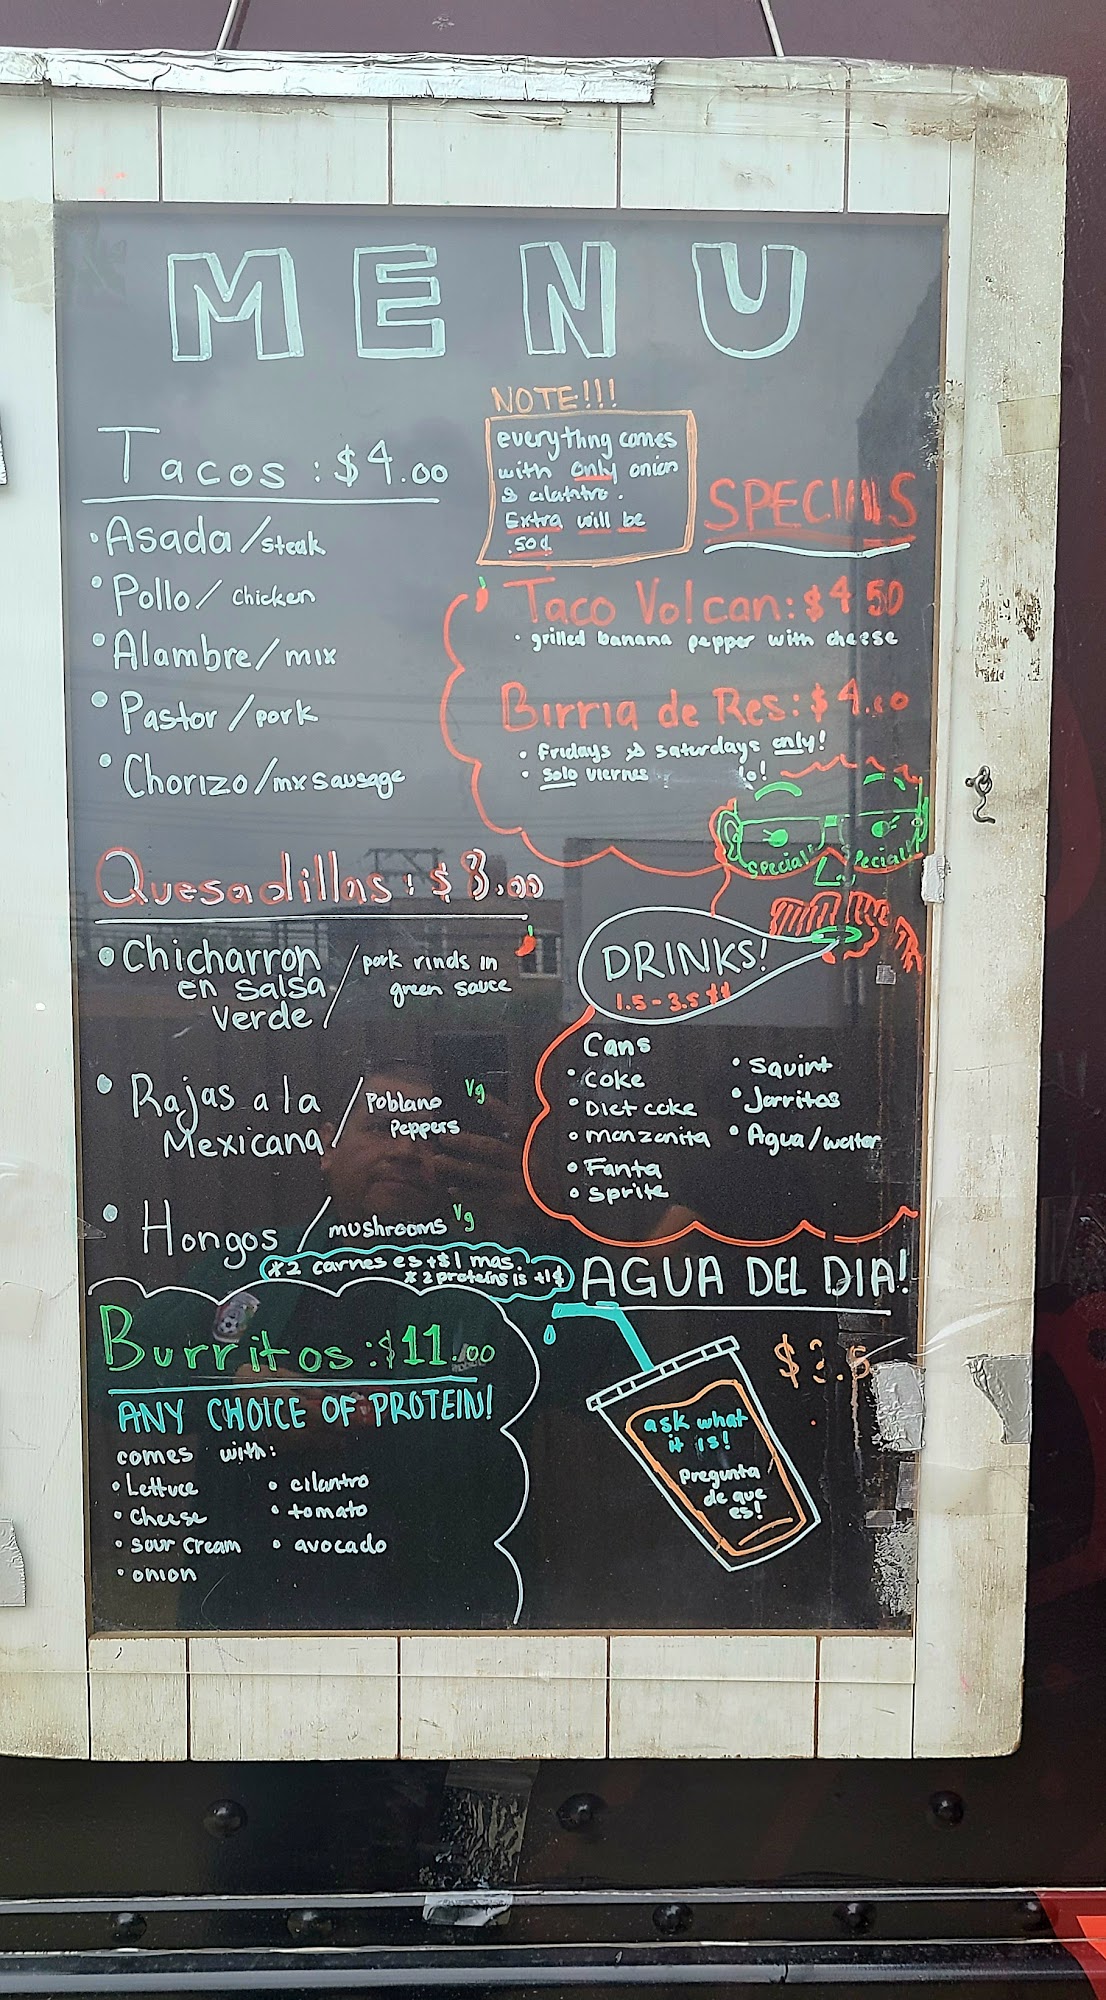 MENU
Tacos : $4.00
• Asada / steak
• Pollo / chicken
• Alambre / mix
• Pastor / pork
• Chorizo / mx sausage
NOTE!!!
everything comes
with only onion
& cilantro.
Extra will be
.50¢
SPECIALS
Taco Volcan: $4.50
• grilled banana pepper with cheese
Birria de Res: $4.00
• Fridays & saturdays only!
• Solo viernes
Special! Special!
Quesadillas : $8.00
• Chicharron / pork rinds in
en salsa green sauce
Verde /
• Rajas a la / Poblano Vg
Mexicana / Peppers
• Hongos / mushrooms Vg
*2 carnes es +$1 mas.
*2 proteins is +1$
DRINKS!
1.5 - 3.5 $$
Cans
• Coke
• Diet coke
• manzanita
• Fanta
• sprite
• Squirt
• Jarritos
• Agua/water
Burritos : $11.00
ANY CHOICE OF PROTEIN!
comes with:
• Lettuce
• Cheese
• sour cream
• onion
• cilantro
• tomato
• avocado
AGUA DEL DIA!
ask what
it is!
Pregunta
de que
es!